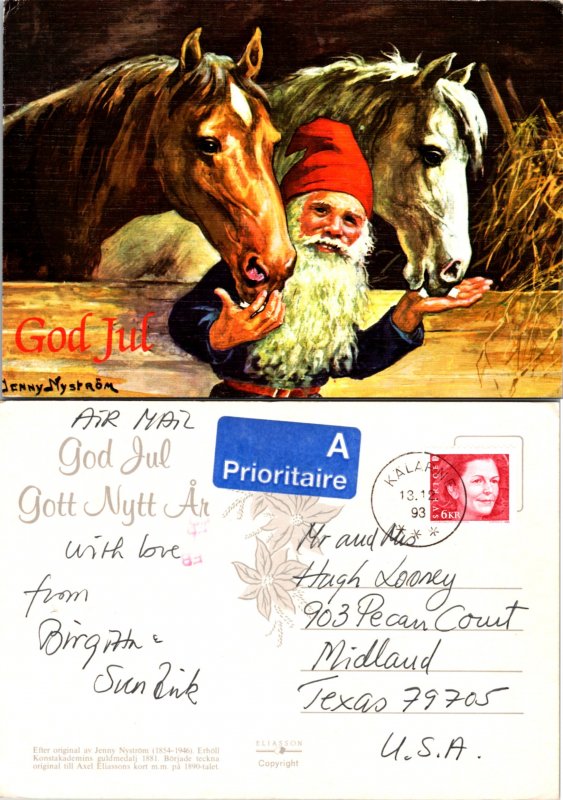 God Jul
JENNY NYSTRÖM
AIR MAIL
God Jul
Gott Nytt År
with love
from
Birgitta &
Sun
A
Prioritaire
KÄLARNE
13.12
93
SVERIGE
6KR
Mr and Mrs
Hugh Looney
903 Pecan Court
Midland
Texas 79705
U.S.A.
Efter original av Jenny Nyström (1854-1946). Erhöll
Konstakademins guldmedalj 1881. Började teckna
original till Axel Eliassons kort m.m. på 1890-talet.
ELIASSON
Copyright